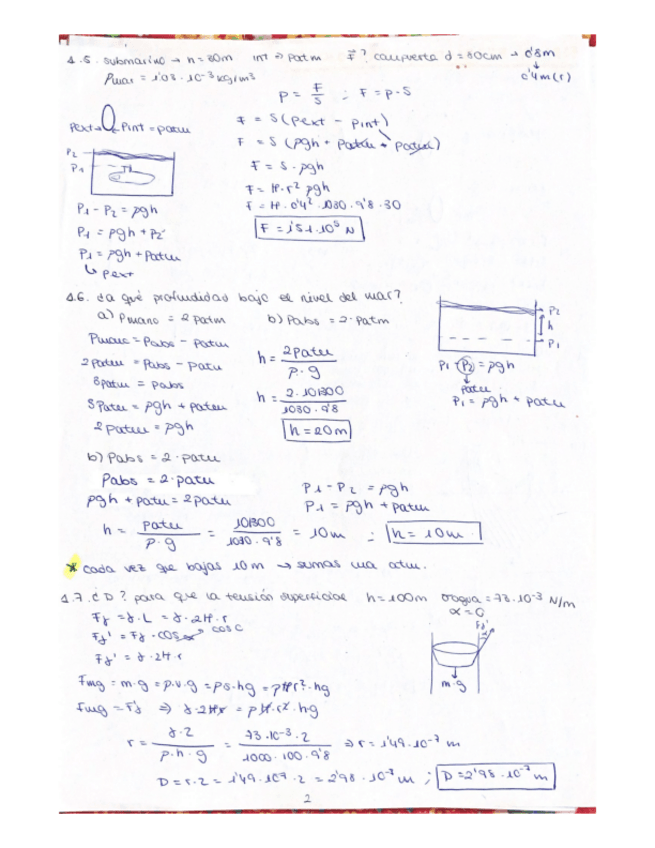 1.5. submarino → h = 30m int ⇒ patm F? compuerta d = 80cm → 0'8m
↓
0'4m (r)
ρmar = 1'03 · 10⁻³ kg/m³
P = F/S ; F = p · S
Pext → Pint = patm
F = S (pext - pint)
F = S (ρgh + patm + patm)
F = S · ρgh
F = π · r² ρgh
F = π · 0'4² · 1030 · 9'8 · 30
F = 1'51 · 10⁵ N
P2
P1
P1 - P2 = ρgh
P1 = ρgh + P2
P1 = ρgh + Patm
↳ Pext
1.6. ¿a qué profundidad bajo el nivel del mar?
a) Pmano = 2 Patm b) Pabs = 2 · Patm
Pmano = Pabs - Patm
2Patm = Pabs - Patm
3Patm = Pabs
3Patm = ρgh + Patm
2Patm = ρgh
h = 2Patm / ρ · g
h = 2 · 101300 / 1030 · 9'8
h = 20m
P2
h
P1
P1 - P2 = ρgh
↓
Patm
P1 = ρgh + Patm
b) Pabs = 2 · patm
Pabs = 2 · patm
ρgh + patm = 2patm
P1 - P2 = ρgh
P1 = ρgh + patm
h = patm / ρ · g = 101300 / 1030 · 9'8 = 10m ; h = 10m
* cada vez que bajas 10m → sumas una atm.
1.7. ¿D? para que la tensión superficial h = 100m σagua = 73 · 10⁻³ N/m
α = 0
Fγ = γ · L = γ · 2π · r
Fγ' = Fγ · cos α → cos 0
Fγ' = γ · 2π · r
Fγ'
m · g
Fmg = m · g = ρ · v · g = ρ s · hg = ρπr² · hg
Fmg = Fγ' ⇒ γ · 2πr = ρ π · r² · hg
r = γ · 2 / ρ · h · g = 73 · 10⁻³ · 2 / 1000 · 100 · 9'8 ⇒ r = 1'49 · 10⁻⁷ m
D = r · 2 = 1'49 · 10⁷ · 2 = 2'98 · 10⁻⁷ m ; D = 2'98 · 10⁻⁷ m
2